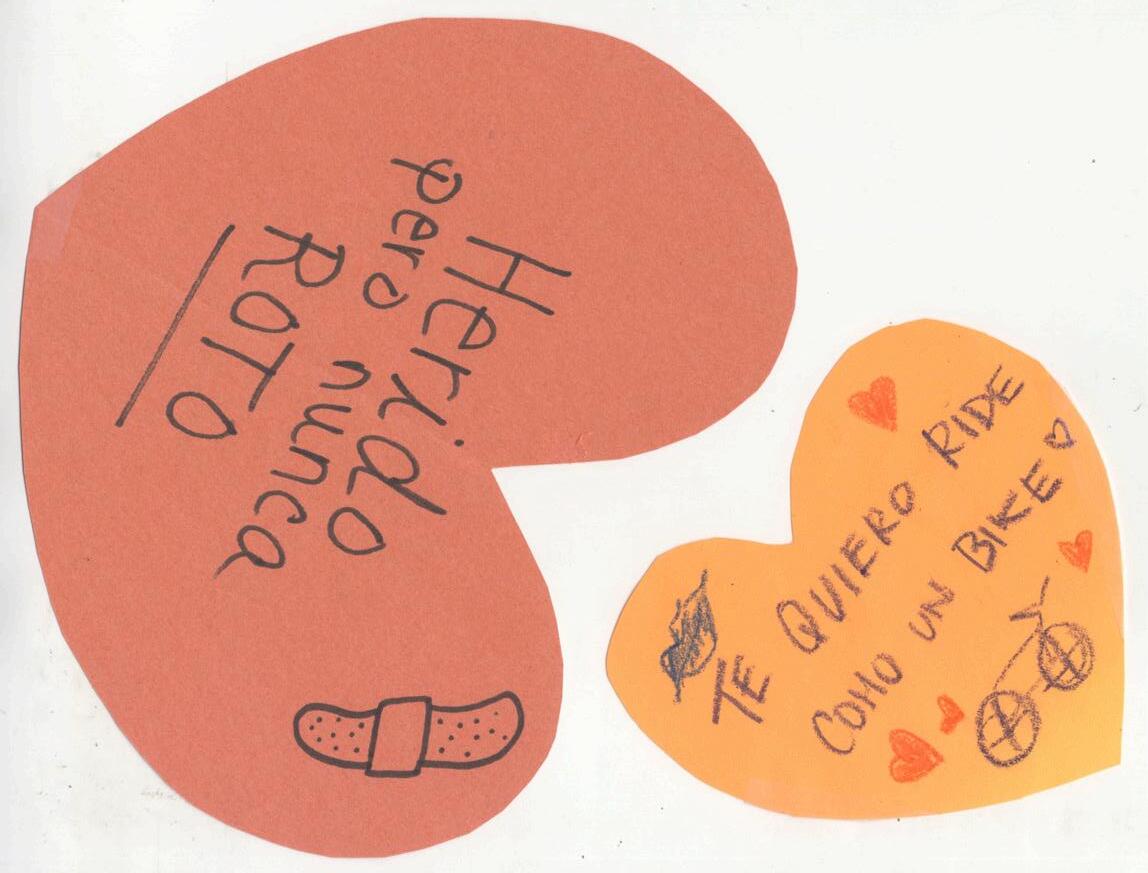 Herido
pero nunca
ROTO
TE QUIERO RIDE
COMO UN BIKE